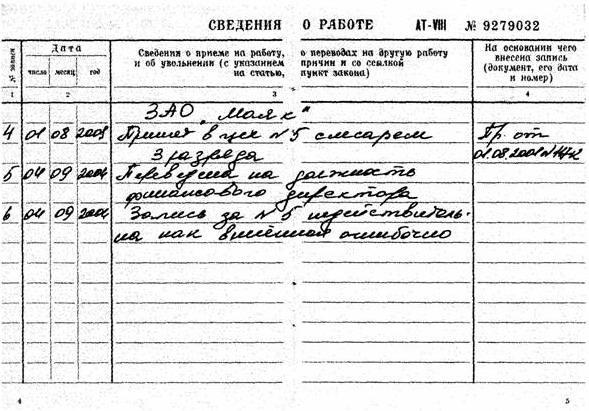 СВЕДЕНИЯ О РАБОТЕ АТ-VIII № 9279032
№ записи
Дата
Сведения о приеме на работу, о переводах на другую работу
и об увольнении (с указанием причин и со ссылкой
на статью, пункт закона)
На основании чего
внесена запись
(документ, его дата
и номер)
число месяц год
1 2 3 4
ЗАО "Маяк"
4 01 08 Принят в цех №5 слесарем Пр. от
3 разряда 01.08.2001
5 04 09 Переведена на должность
финансового директора
6 04 09 Запись за №5 недействитель-
на как внесённая ошибочно
4 5